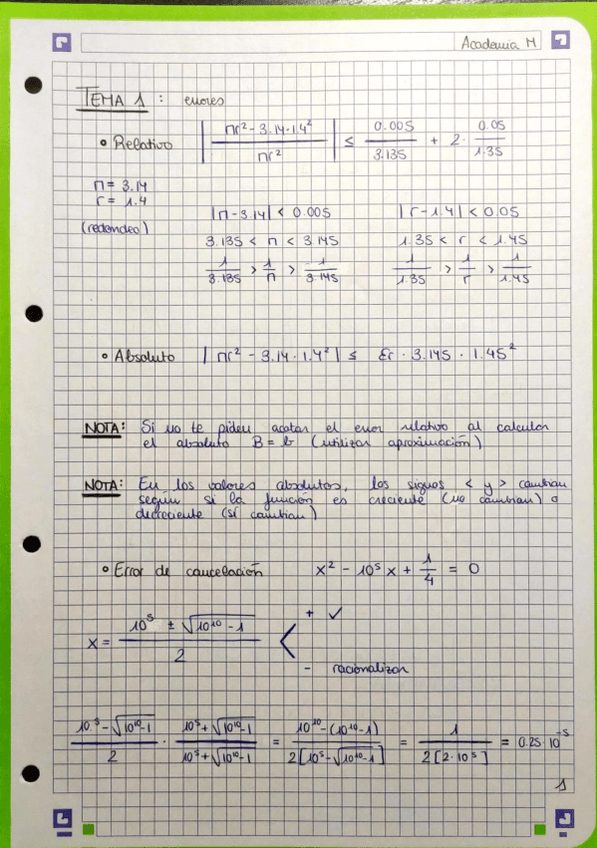 Academia M
TEMA 1 : errores
• Relativo | πr² - 3.14·1.4² / πr² | ≤ 0.005 / 3.135 + 2 · 0.05 / 1.35
π = 3.14
r = 1.4
(redondeo)
|π - 3.14| < 0.005 |r - 1.4| < 0.05
3.135 < π < 3.145 1.35 < r < 1.45
1/3.135 > 1/π > 1/3.145 1/1.35 > 1/r > 1/1.45
• Absoluto | πr² - 3.14 · 1.4² | ≤ Er · 3.145 · 1.45²
NOTA: Si no te piden acotar el error relativo al calcular
el absoluto B = b (utilizar aproximación)
NOTA: En los valores absolutos, los signos < y > cambian
según si la función es creciente (no cambian) o
decreciente (sí cambian)
• Error de cancelación x² - 10⁵ x + 1/4 = 0
x = 10⁵ ± √(10¹⁰ - 1) / 2 < + ✓
- racionalizar
10⁵ - √(10¹⁰-1) / 2 · 10⁵ + √(10¹⁰-1) / 10⁵ + √(10¹⁰-1) = 10¹⁰ - (10¹⁰ - 1) / 2[10⁵ - √(10¹⁰-1)] = 1 / 2[2·10⁵] = 0.25 · 10⁻⁵
1